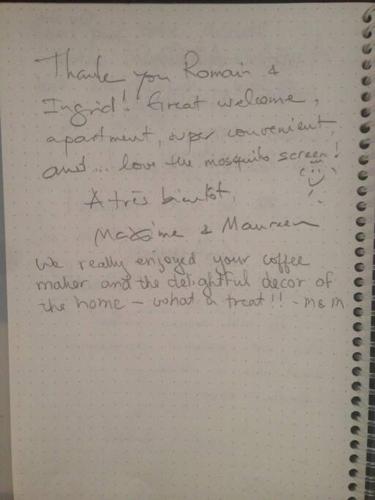 Thank you Romain &
Ingrid! Great welcome,
apartment, super convenient,
and... love the mosquito screen!
À très bientôt,
Maxime & Maureen
We really enjoyed your coffee
maker and the delightful decor of
the home - what a treat!! - M&M